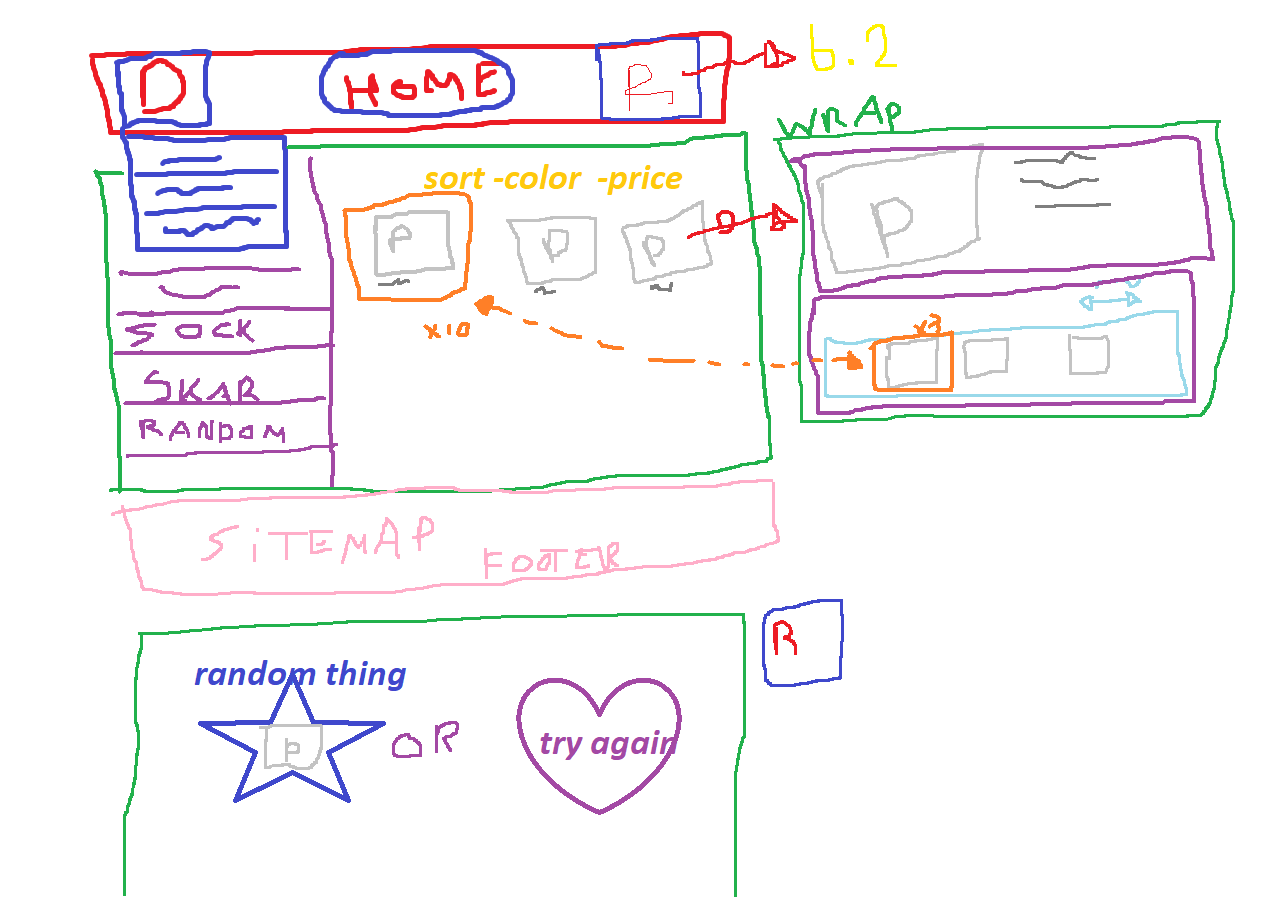 D HOME R 6.2
WRAP
sort -color -price
P P P D
P
x10
x3
SOCK
SKAR
RANDOM
SiTEMAP
FOOTER
R
random thing
P OR try again